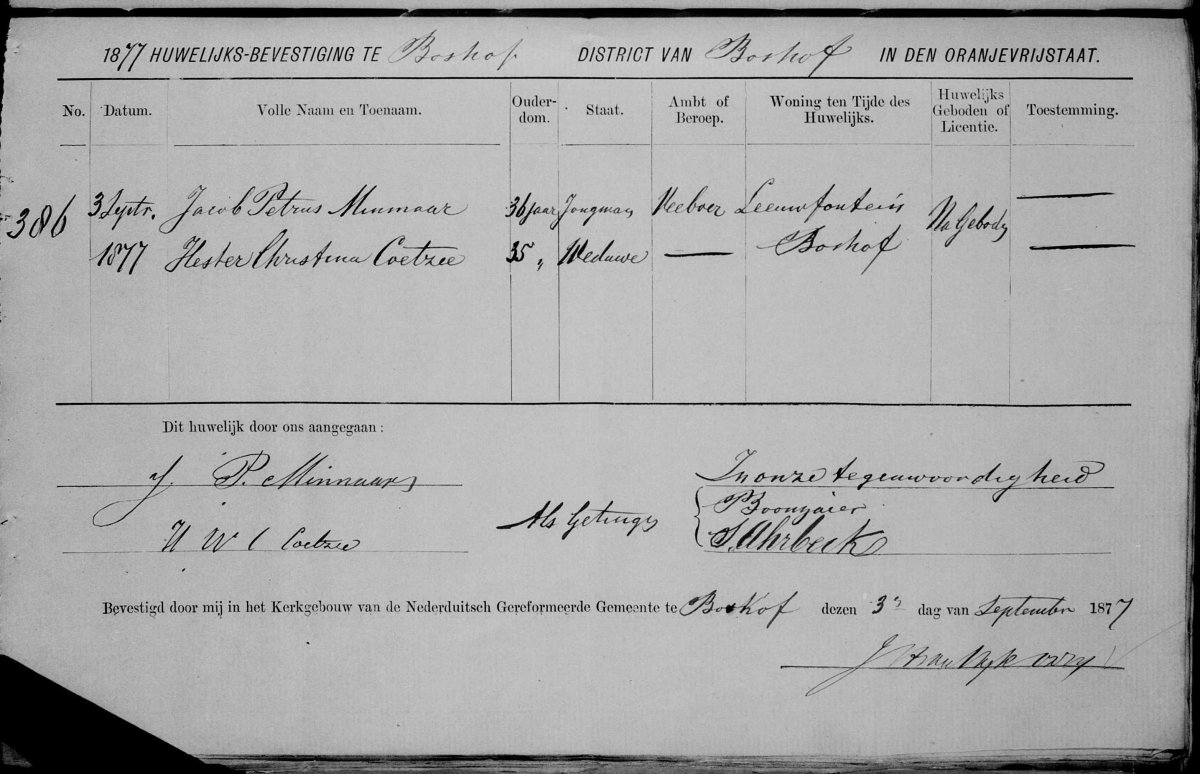 1877 HUWELIJKS-BEVESTIGING TE Boshof DISTRICT VAN Boshof IN DEN ORANJEVRIJSTAAT.
No. Datum. Volle Naam en Toenaam. Ouder-dom. Staat. Ambt of Beroep. Woning ten Tijde des Huwelijks. Huwelijks Geboden of Licentie. Toestemming.
386 3 Septr. Jacob Petrus Minnaar 36 jaar Jongman Veeboer Leeuwfontein Na Geboden —
1877 Hester Christina Coetzee 35 „ Weduwe — Boshof —
Dit huwelijk door ons aangegaan:
J. P. Minnaar
In onze tegenwoordigheid
Als Getuigen
Boonzaier
H W C Coetzee
S. Ahrbeck
Bevestigd door mij in het Kerkgebouw van de Nederduitsch Gereformeerde Gemeente te Boshof dezen 3 dag van September 1877